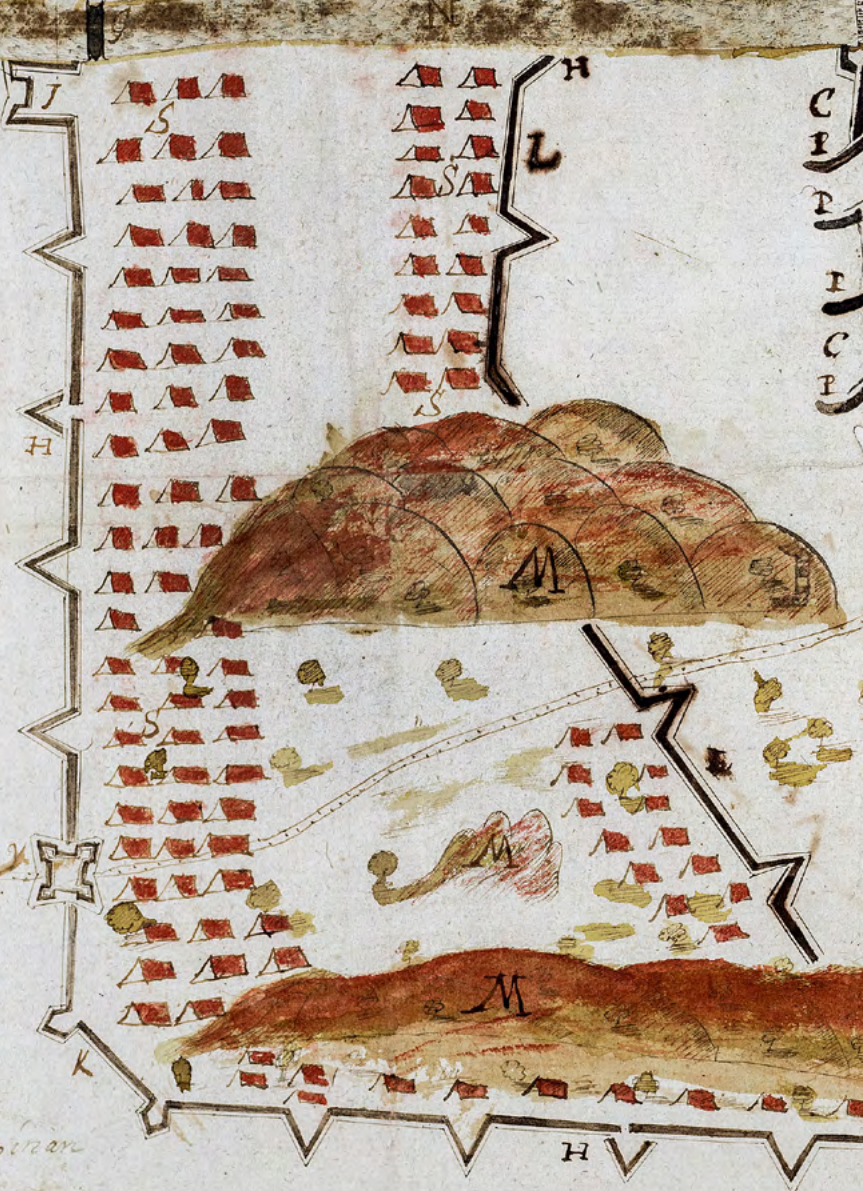 g
N
J
S
H
L
C
P
S
P
I
C
P
S
H
M
S
L
M
M
K
H